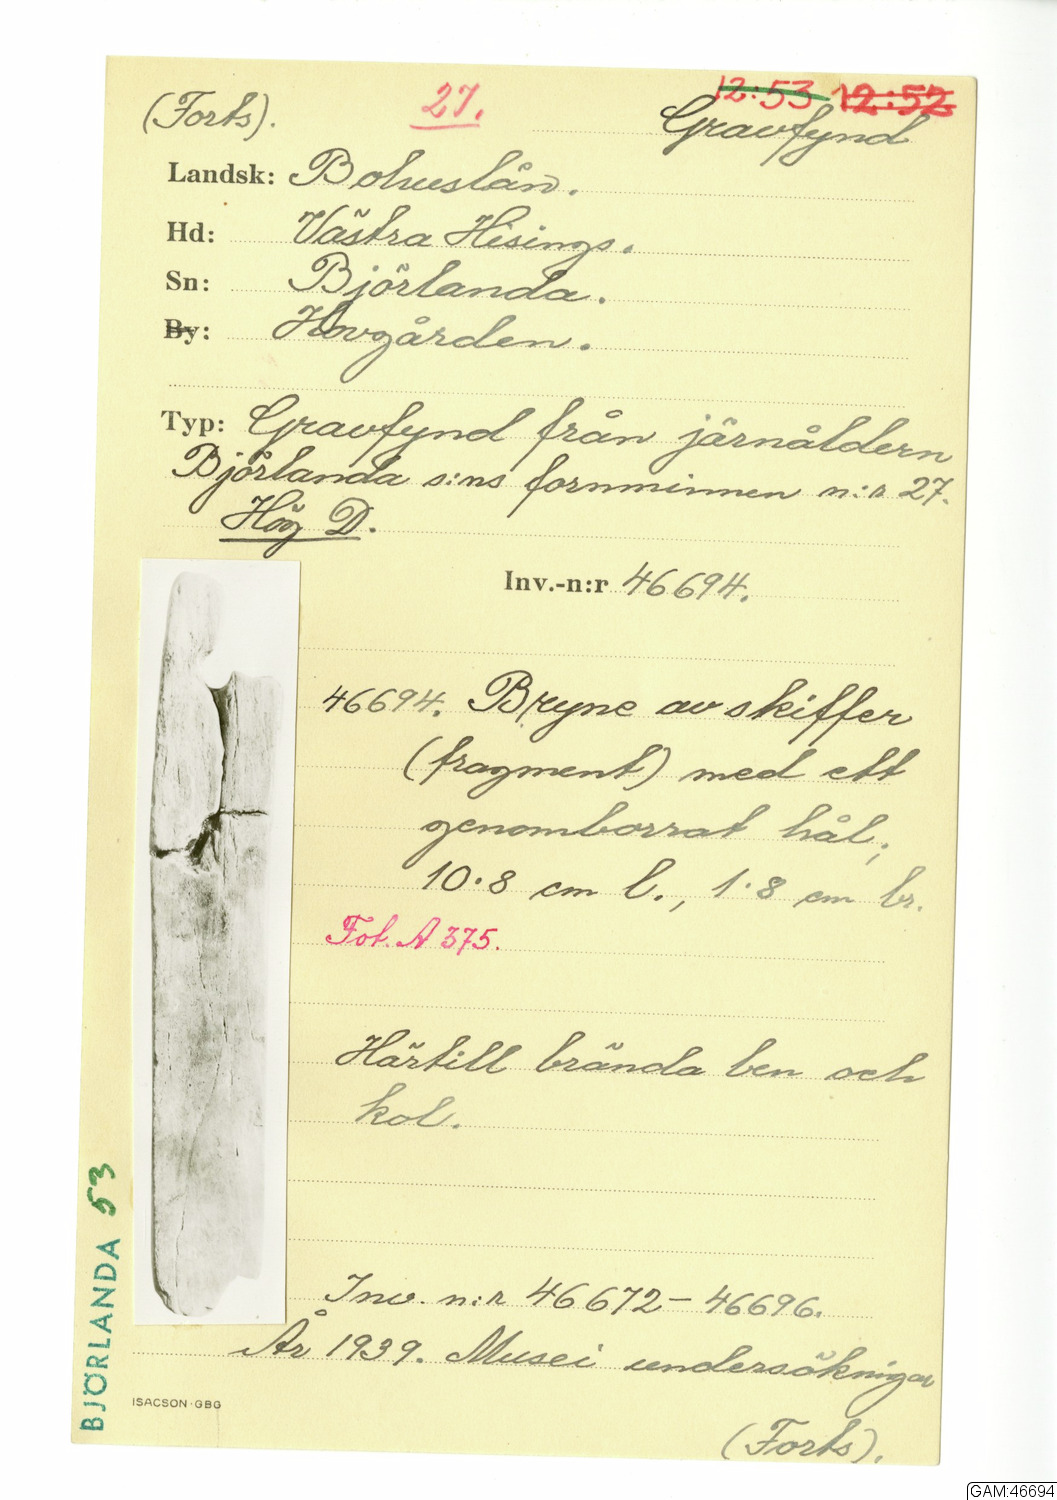 (Forts). 27. 12:53 12:52
Gravfynd
Landsk: Bohuslän.
Hd: Västra Hisings.
Sn: Björlanda.
By: Hovgården.
Typ: Gravfynd från järnåldern
Björlanda s:ns fornminnen n:r 27.
Hög D.
Inv.-n:r 46694.
46694. Bryne av skiffer
(fragment) med ett
genomborrat hål;
10.8 cm l., 1.8 cm br.
Fot. A 375.
Härtill brända ben och
kol.
Inv. n:r 46672-46696.
År 1939. Musei undersökningar
(Forts).
ISACSON·GBG
BJÖRLANDA 53
GAM:46694